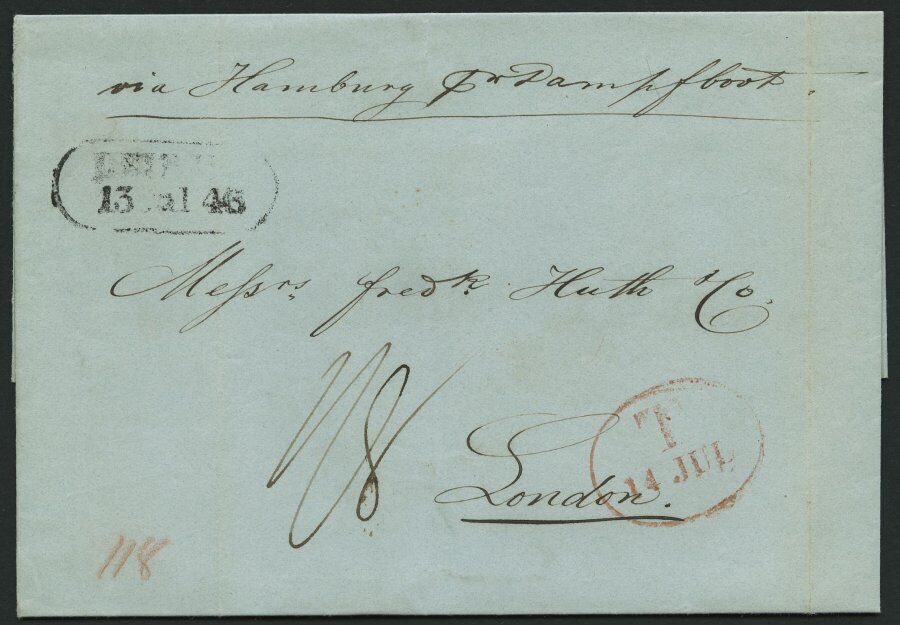 via Hamburg pr Dampfboot.
13 Jul 46
Messrs. Fredk. Huth & Co.
1/8
T
14 JUL
London.
118